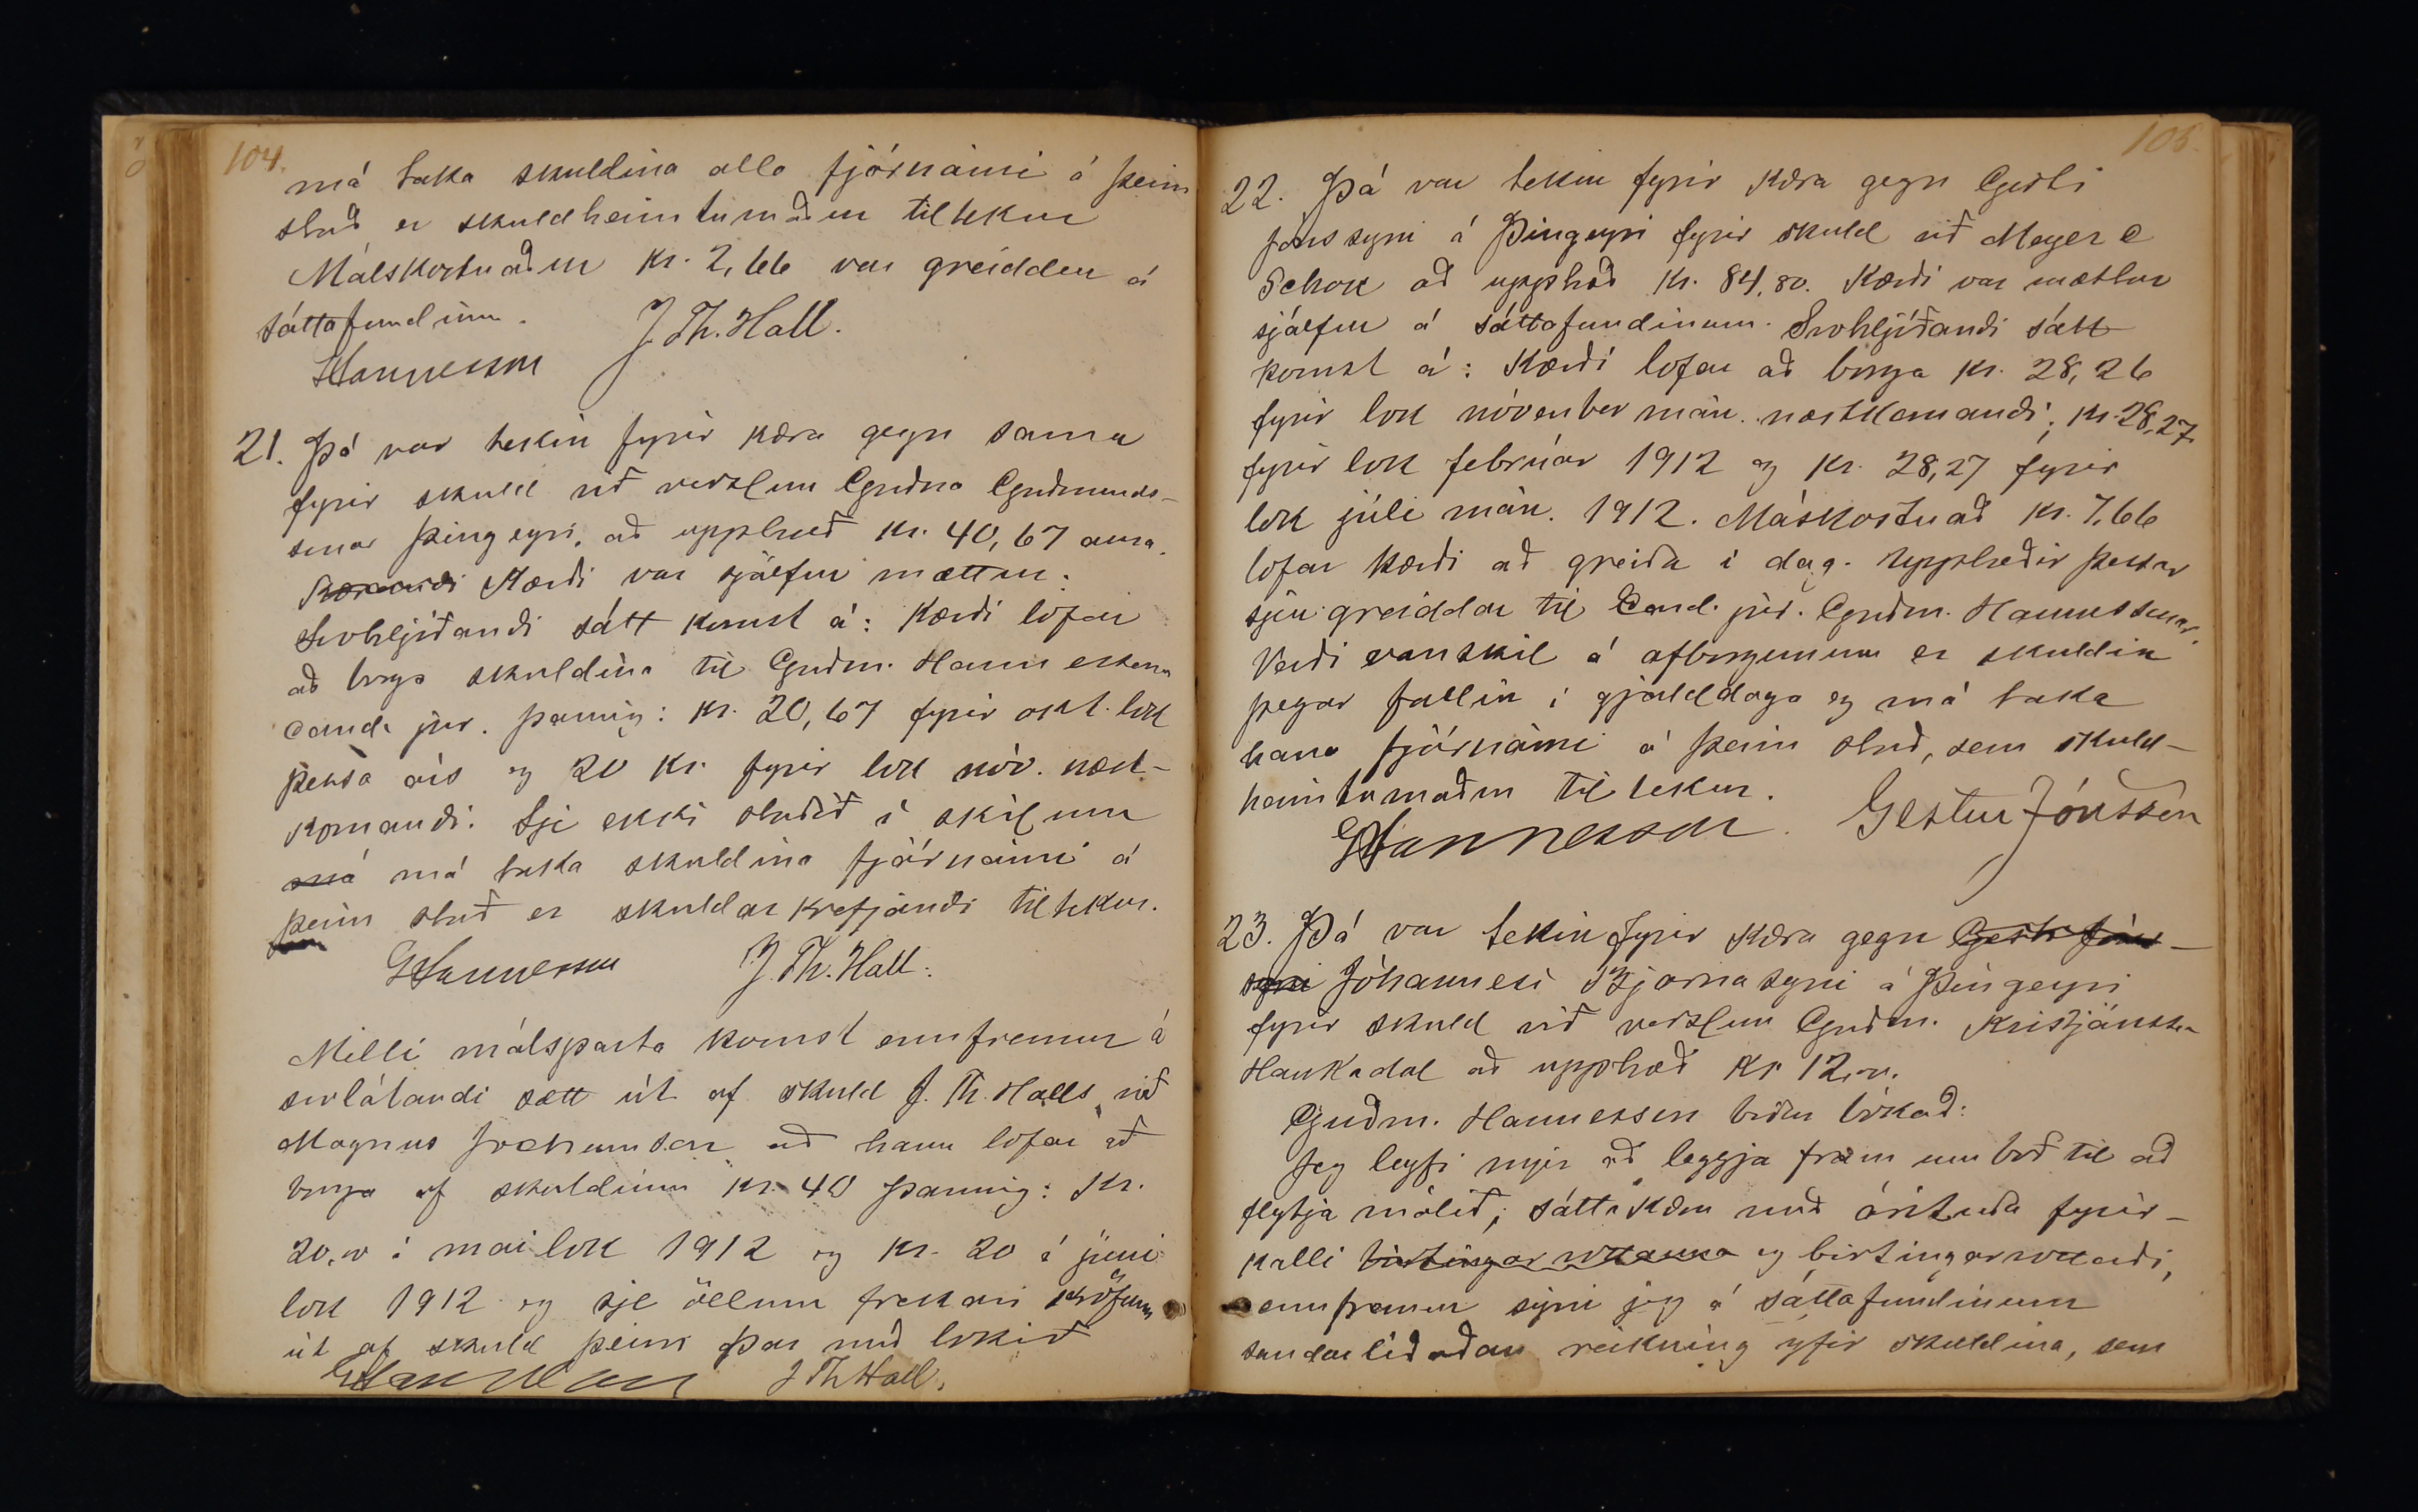 104.
má taka skuldina alla fjárnámi á þeim
stað er skuldheimtumaður tiltekur
Málskostnaður kr. 2,66 var greiddur á
sáttafundinum.
J. Th. Hall.
GHannesson
21. Þá var tekin fyrir kæra gegn sama
fyrir skuld við verzlun Guðna Guðmunds-
sonar Þingeyri, að upphæð kr. 40,67 aura.
Kærandi Kærði var sjálfur mættur.
Svohljóðandi sátt komst á: Kærði lofar
að borga skuldina til Guðm. Hannessonar
cand. jur. þannig: kr. 20,67 fyrir okt. lok
þessa árs og 20 kr. fyrir lok nóv. næst-
komandi. Sje ekki staðið í skilum
má má taka skuldina fjárnámi á
þeim stað er skuldar krefjandi tiltekur.
GHannesson J. Th. Hall.
Milli málsparta komst ennfremur á
svolátandi sætt út af skuld J. Th. Halls við
Magnus Jochumson að hann lofar að
borga af skuldinni kr. 40 þannig: Kr.
20.00 í maílok 1912 og kr. 20 í júní
lok 1912 og sje öllum frekari kröfum
út af skuld þeirri þar með lokið
GHannesson J Th Hall.
105.
22. Þá var tekin fyrir kæra gegn Gesti
Jónssyni á Þingeyri fyrir skuld við Meyer &
Schou að upphæð kr. 84,80. Kærði var mættur
sjálfur á sáttafundinum. Svohljóðandi sátt
komst á: Kærði lofar að borga kr. 28,26
fyrir lok nóvember mán. næstkomandi; kr. 28,27
fyrir lok febrúar 1912 og kr. 28,27 fyrir
lok júlí mán. 1912. Máskostnað kr. 7,66
lofar kærði að greiða í dag. Upphæðir þessar
sjeu greiddar til Cand. jur. Guðm. Hannessonar.
Verði vanskil á afborgunum er skuldin
þegar fallin í gjalddaga og má taka
hana fjárnámi á þeim stað, sem skuld-
heimtumaður tiltekur.
GHannesson. Gestur Jónsson
23. Þá var tekin fyrir kæra gegn Gesti Jóns-
syni Jóhannesi Bjarnasyni á Þingeyri
fyrir skuld við verzlun Guðm. Kristjánssonar
Haukadal að upphæð kr 12,00.
Guðm. Hannesson biður bókað:
Jeg leyfi mjer að leggja fram umboð til að
flytja málið; sáttakæru með árituðu fyrir-
kalli birtingar vottanna og birtingarvottorði,
ennfremur sýni jeg á sáttafundinum
sundurliðaðan reikning yfir skuldina, sem